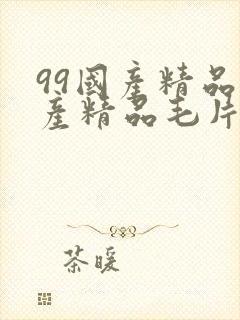 99國產精品
產精品毛片
茶暖